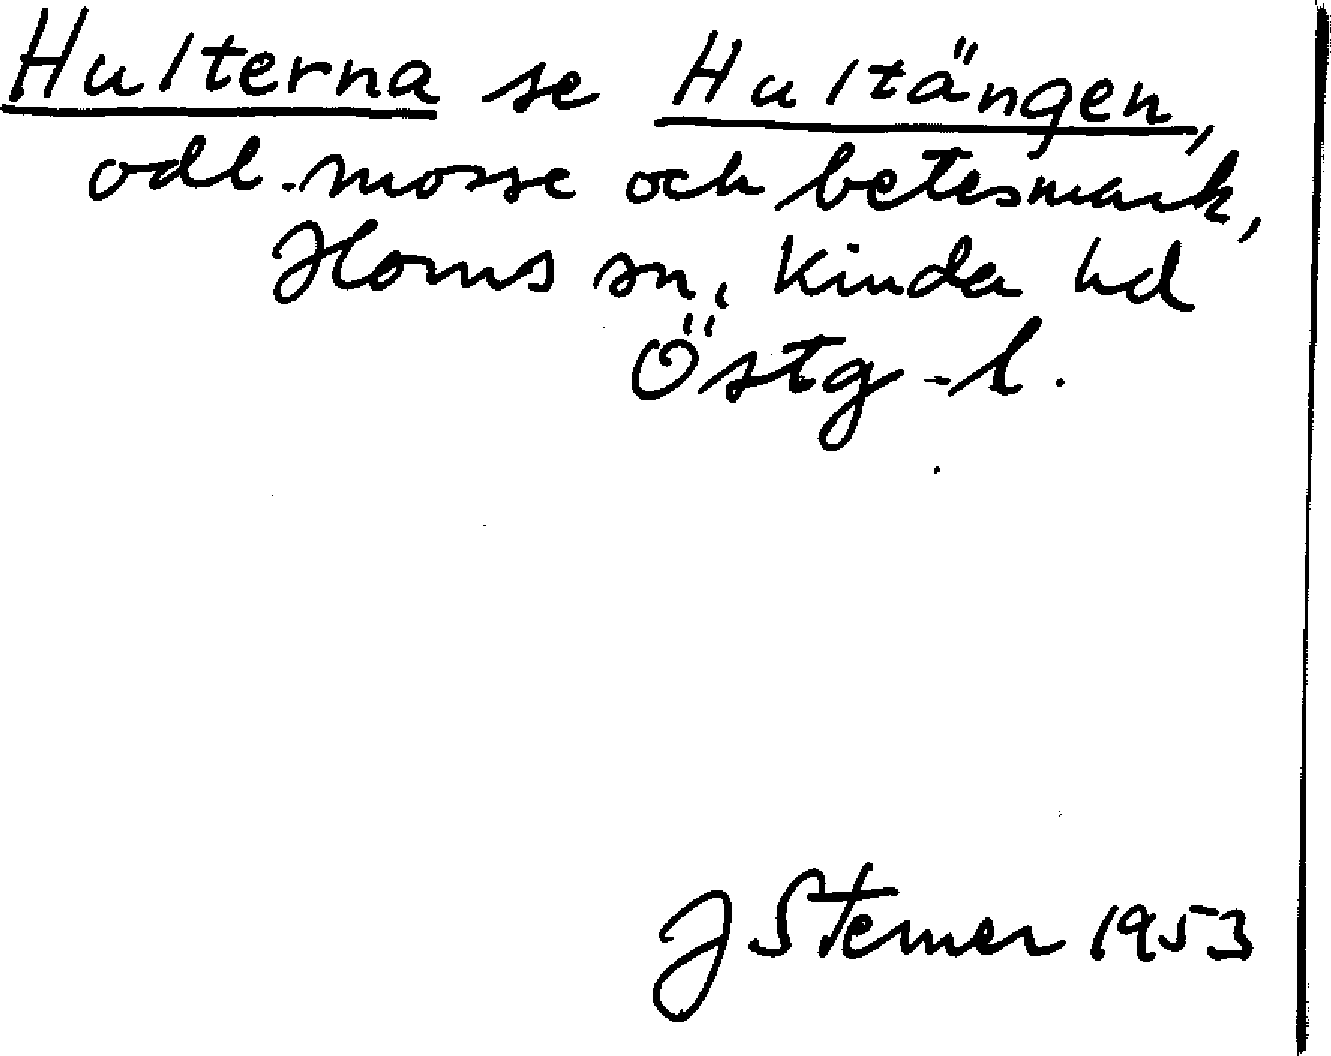 Hulterna se Hultängen,
odl. mosse och betesmark,
Horns sn, Kinda hd
Östg-l.
J Sterner 1953